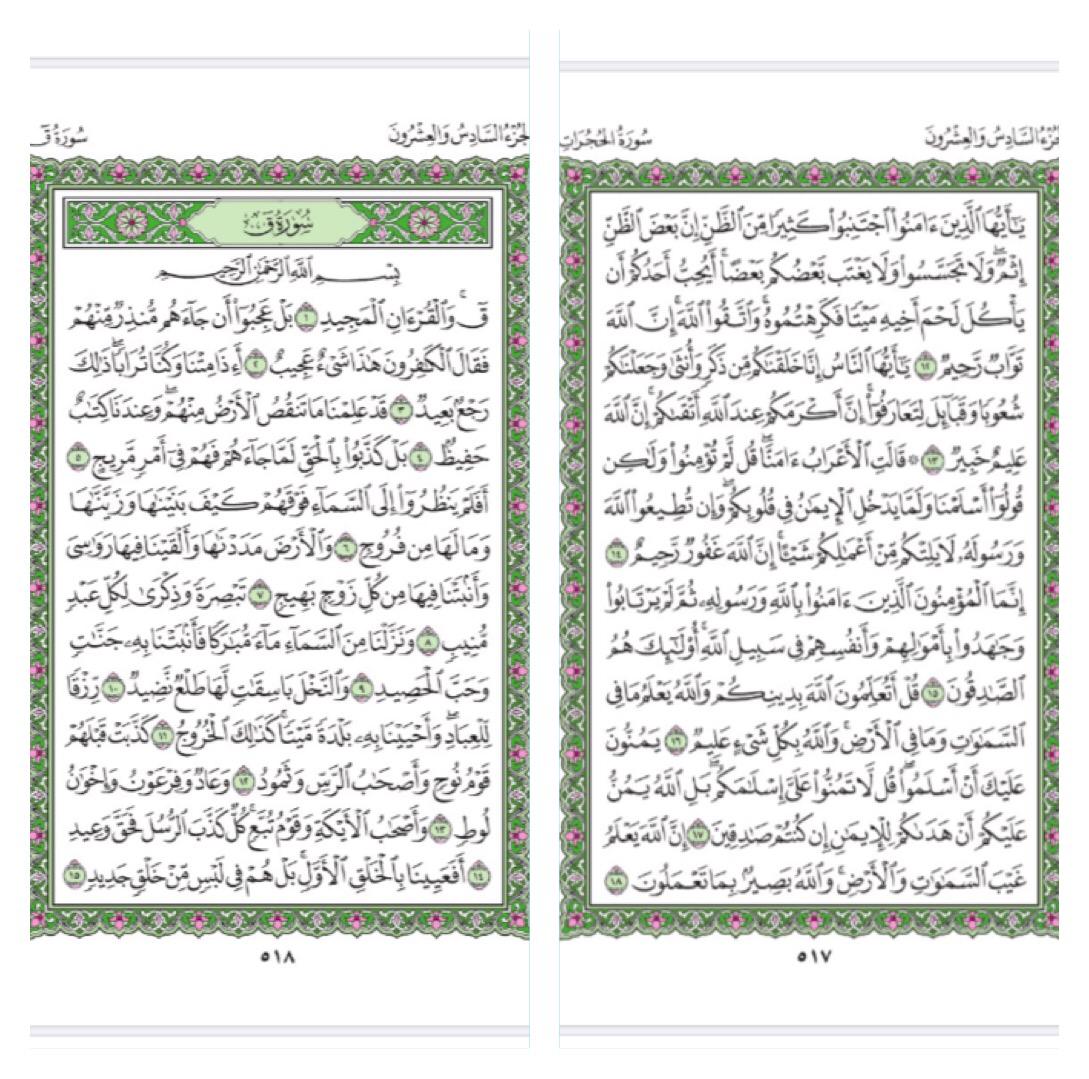 الجزء السادس والعشرون
سورة الحجرات
يَٰٓأَيُّهَا ٱلَّذِينَ ءَامَنُوا۟ ٱجْتَنِبُوا۟ كَثِيرًا مِّنَ ٱلظَّنِّ إِنَّ بَعْضَ ٱلظَّنِّ
إِثْمٌ ۖ وَلَا تَجَسَّسُوا۟ وَلَا يَغْتَب بَّعْضُكُم بَعْضًا ۚ أَيُحِبُّ أَحَدُكُمْ أَن
يَأْكُلَ لَحْمَ أَخِيهِ مَيْتًا فَكَرِهْتُمُوهُ ۚ وَٱتَّقُوا۟ ٱللَّهَ ۚ إِنَّ ٱللَّهَ
تَوَّابٌ رَّحِيمٌ ١٢ يَٰٓأَيُّهَا ٱلنَّاسُ إِنَّا خَلَقْنَٰكُم مِّن ذَكَرٍ وَأُنثَىٰ وَجَعَلْنَٰكُمْ
شُعُوبًا وَقَبَآئِلَ لِتَعَارَفُوٓا۟ ۚ إِنَّ أَكْرَمَكُمْ عِندَ ٱللَّهِ أَتْقَىٰكُمْ ۚ إِنَّ ٱللَّهَ
عَلِيمٌ خَبِيرٌ ١٣ ۞ قَالَتِ ٱلْأَعْرَابُ ءَامَنَّا ۖ قُل لَّمْ تُؤْمِنُوا۟ وَلَٰكِن
قُولُوٓا۟ أَسْلَمْنَا وَلَمَّا يَدْخُلِ ٱلْإِيمَٰنُ فِى قُلُوبِكُمْ ۖ وَإِن تُطِيعُوا۟ ٱللَّهَ
وَرَسُولَهُۥ لَا يَلِتْكُم مِّنْ أَعْمَٰلِكُمْ شَيْـًٔا ۚ إِنَّ ٱللَّهَ غَفُورٌ رَّحِيمٌ ١٤
إِنَّمَا ٱلْمُؤْمِنُونَ ٱلَّذِينَ ءَامَنُوا۟ بِٱللَّهِ وَرَسُولِهِۦ ثُمَّ لَمْ يَرْتَابُوا۟
وَجَٰهَدُوا۟ بِأَمْوَٰلِهِمْ وَأَنفُسِهِمْ فِى سَبِيلِ ٱللَّهِ ۚ أُو۟لَٰٓئِكَ هُمُ
ٱلصَّٰدِقُونَ ١٥ قُلْ أَتُعَلِّمُونَ ٱللَّهَ بِدِينِكُمْ وَٱللَّهُ يَعْلَمُ مَا فِى
ٱلسَّمَٰوَٰتِ وَمَا فِى ٱلْأَرْضِ ۚ وَٱللَّهُ بِكُلِّ شَىْءٍ عَلِيمٌ ١٦ يَمُنُّونَ
عَلَيْكَ أَنْ أَسْلَمُوا۟ ۖ قُل لَّا تَمُنُّوا۟ عَلَىَّ إِسْلَٰمَكُم ۖ بَلِ ٱللَّهُ يَمُنُّ
عَلَيْكُمْ أَنْ هَدَىٰكُمْ لِلْإِيمَٰنِ إِن كُنتُمْ صَٰدِقِينَ ١٧ إِنَّ ٱللَّهَ يَعْلَمُ
غَيْبَ ٱلسَّمَٰوَٰتِ وَٱلْأَرْضِ ۚ وَٱللَّهُ بَصِيرٌۢ بِمَا تَعْمَلُونَ ١٨
٥١٧
الجزء السادس والعشرون
سورة ق
سُورَةُ قٓ
بِسْمِ ٱللَّهِ ٱلرَّحْمَٰنِ ٱلرَّحِيمِ
قٓ ۚ وَٱلْقُرْءَانِ ٱلْمَجِيدِ ١ بَلْ عَجِبُوٓا۟ أَن جَآءَهُم مُّنذِرٌ مِّنْهُمْ
فَقَالَ ٱلْكَٰفِرُونَ هَٰذَا شَىْءٌ عَجِيبٌ ٢ أَءِذَا مِتْنَا وَكُنَّا تُرَابًا ۖ ذَٰلِكَ
رَجْعٌۢ بَعِيدٌ ٣ قَدْ عَلِمْنَا مَا تَنقُصُ ٱلْأَرْضُ مِنْهُمْ ۖ وَعِندَنَا كِتَٰبٌ
حَفِيظٌۢ ٤ بَلْ كَذَّبُوا۟ بِٱلْحَقِّ لَمَّا جَآءَهُمْ فَهُمْ فِىٓ أَمْرٍ مَّرِيجٍ ٥
أَفَلَمْ يَنظُرُوٓا۟ إِلَى ٱلسَّمَآءِ فَوْقَهُمْ كَيْفَ بَنَيْنَٰهَا وَزَيَّنَّٰهَا
وَمَا لَهَا مِن فُرُوجٍ ٦ وَٱلْأَرْضَ مَدَدْنَٰهَا وَأَلْقَيْنَا فِيهَا رَوَٰسِىَ
وَأَنۢبَتْنَا فِيهَا مِن كُلِّ زَوْجٍۭ بَهِيجٍ ٧ تَبْصِرَةً وَذِكْرَىٰ لِكُلِّ عَبْدٍ
مُّنِيبٍ ٨ وَنَزَّلْنَا مِنَ ٱلسَّمَآءِ مَآءً مُّبَٰرَكًا فَأَنۢبَتْنَا بِهِۦ جَنَّٰتٍ
وَحَبَّ ٱلْحَصِيدِ ٩ وَٱلنَّخْلَ بَاسِقَٰتٍ لَّهَا طَلْعٌ نَّضِيدٌ ١٠ رِّزْقًا
لِّلْعِبَادِ ۖ وَأَحْيَيْنَا بِهِۦ بَلْدَةً مَّيْتًا ۚ كَذَٰلِكَ ٱلْخُرُوجُ ١١ كَذَّبَتْ قَبْلَهُمْ
قَوْمُ نُوحٍ وَأَصْحَٰبُ ٱلرَّسِّ وَثَمُودُ ١٢ وَعَادٌ وَفِرْعَوْنُ وَإِخْوَٰنُ
لُوطٍ ١٣ وَأَصْحَٰبُ ٱلْأَيْكَةِ وَقَوْمُ تُبَّعٍ ۚ كُلٌّ كَذَّبَ ٱلرُّسُلَ فَحَقَّ وَعِيدِ
١٤ أَفَعَيِينَا بِٱلْخَلْقِ ٱلْأَوَّلِ ۚ بَلْ هُمْ فِى لَبْسٍ مِّنْ خَلْقٍ جَدِيدٍ ١٥
٥١٨